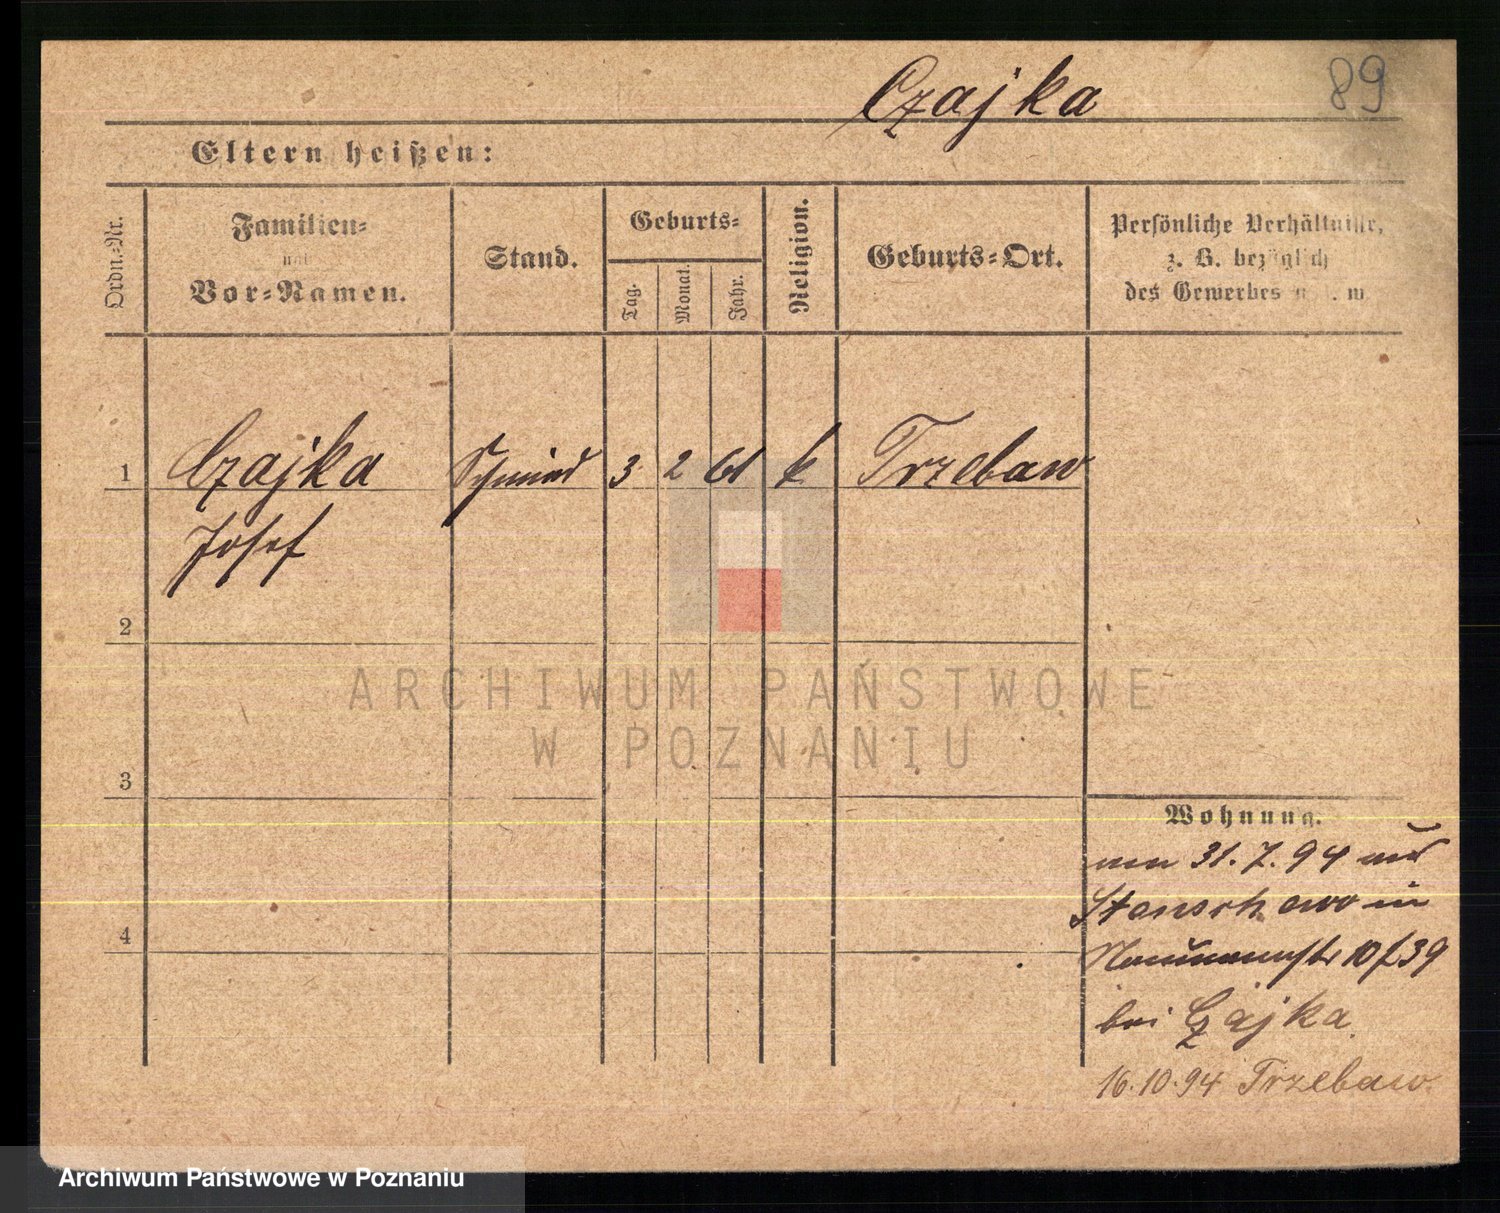 Czajka
89
Eltern heißen:
Ordn.-Nr.
Familien-
und
Vor-Namen.
Stand.
Geburts-
Tag.
Monat.
Jahr.
Religion.
Geburts-Ort.
Persönliche Verhältnisse,
z. B. bezüglich
des Gewerbes u. s. w.
1 Czajka Schmied 3 2 61 k Trzebaw
Josef
2
ARCHIWUM PAŃSTWOWE
W POZNANIU
3
Wohnung.
31. 7. 94
in
10 39
bei Czajka
4
16.10.94 Trzebaw.
Archiwum Państwowe w Poznaniu